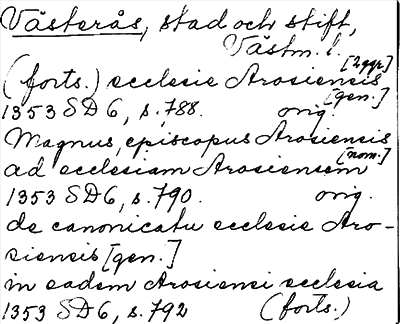 Västerås, stad och stift,
Västm. l.
(forts.) ecclesie Arosiensis [2ggr.]
[gen.]
1353 SD 6, s. 788. orig.
Magnus, episcopus Arosiensis
[nom.]
ad ecclesiam Arosiensem
1353 SD 6, s. 790. orig.
de canonicatu ecclesie Aro-
siensis [gen.]
in eadem Arosiensi ecclesia
1353 SD 6, s. 792 (forts.)